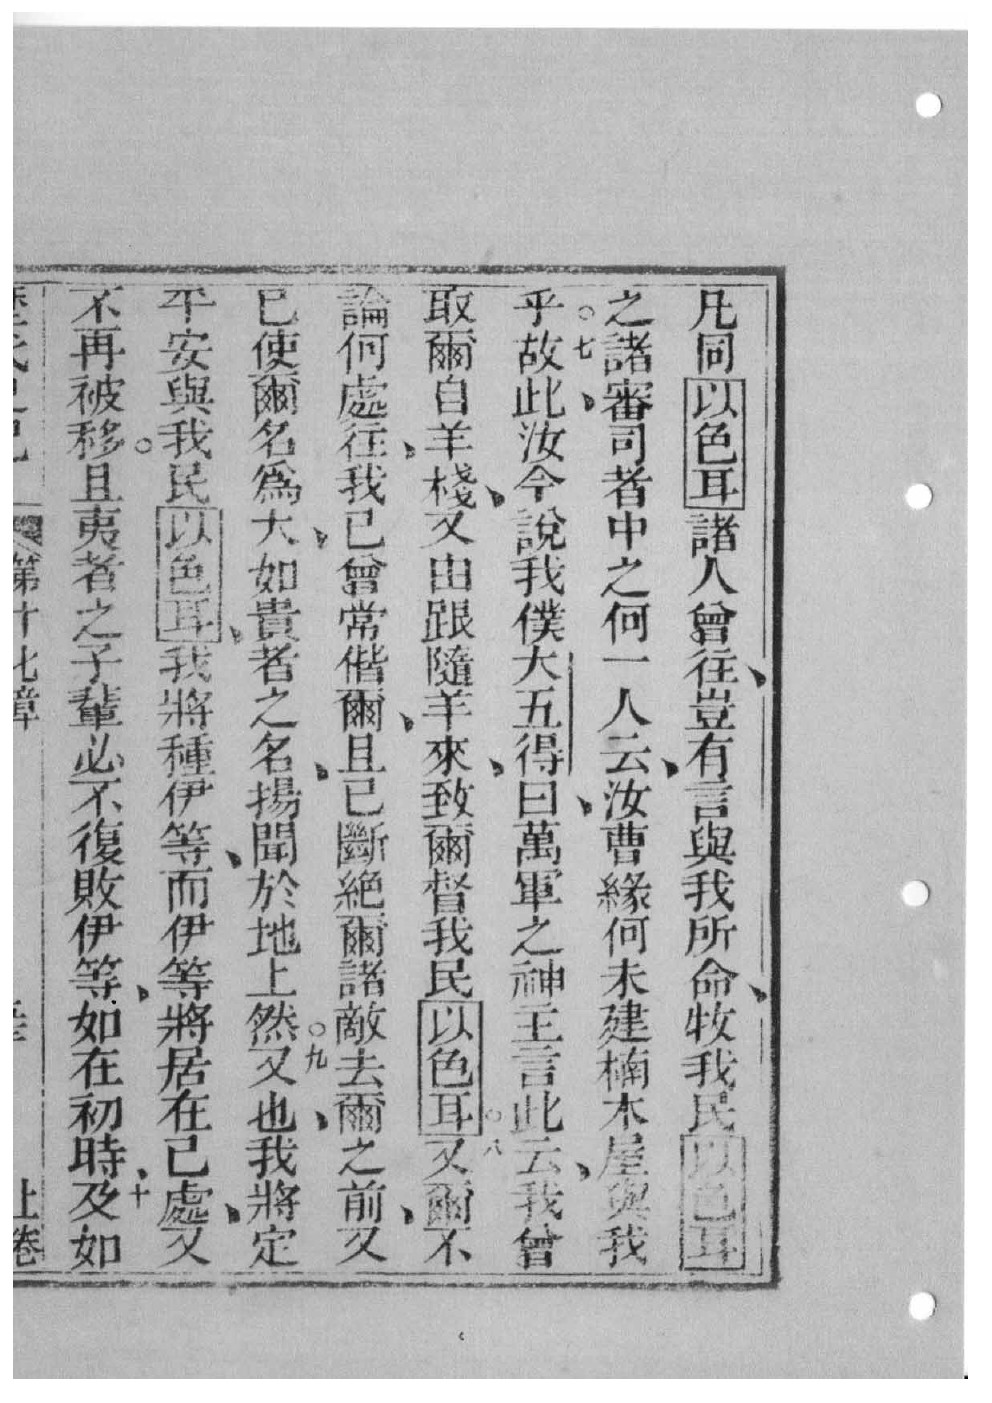 凡同以色耳諸人曾往、豈有言與我所命、牧我民以色耳
之諸審司者中之何一人云、汝曹緣何未建楠木屋與我
乎。七故此、汝今說我僕大五得曰、萬軍之神主言此云、我曾
取爾自羊棧、又由跟隨羊來、致爾督我民以色耳。八又爾不
論何處往、我已曾常偕爾、且已斷絕爾諸敵去爾之前、又
已使爾名爲大、如貴者之名、揚聞於地上然。九又也、我將定
平安與我民以色耳、我將種伊等、而伊等將居在己處、又
不再被移。且夷者之子輩必不復敗伊等、如在初時、十及如
第十七章 上卷